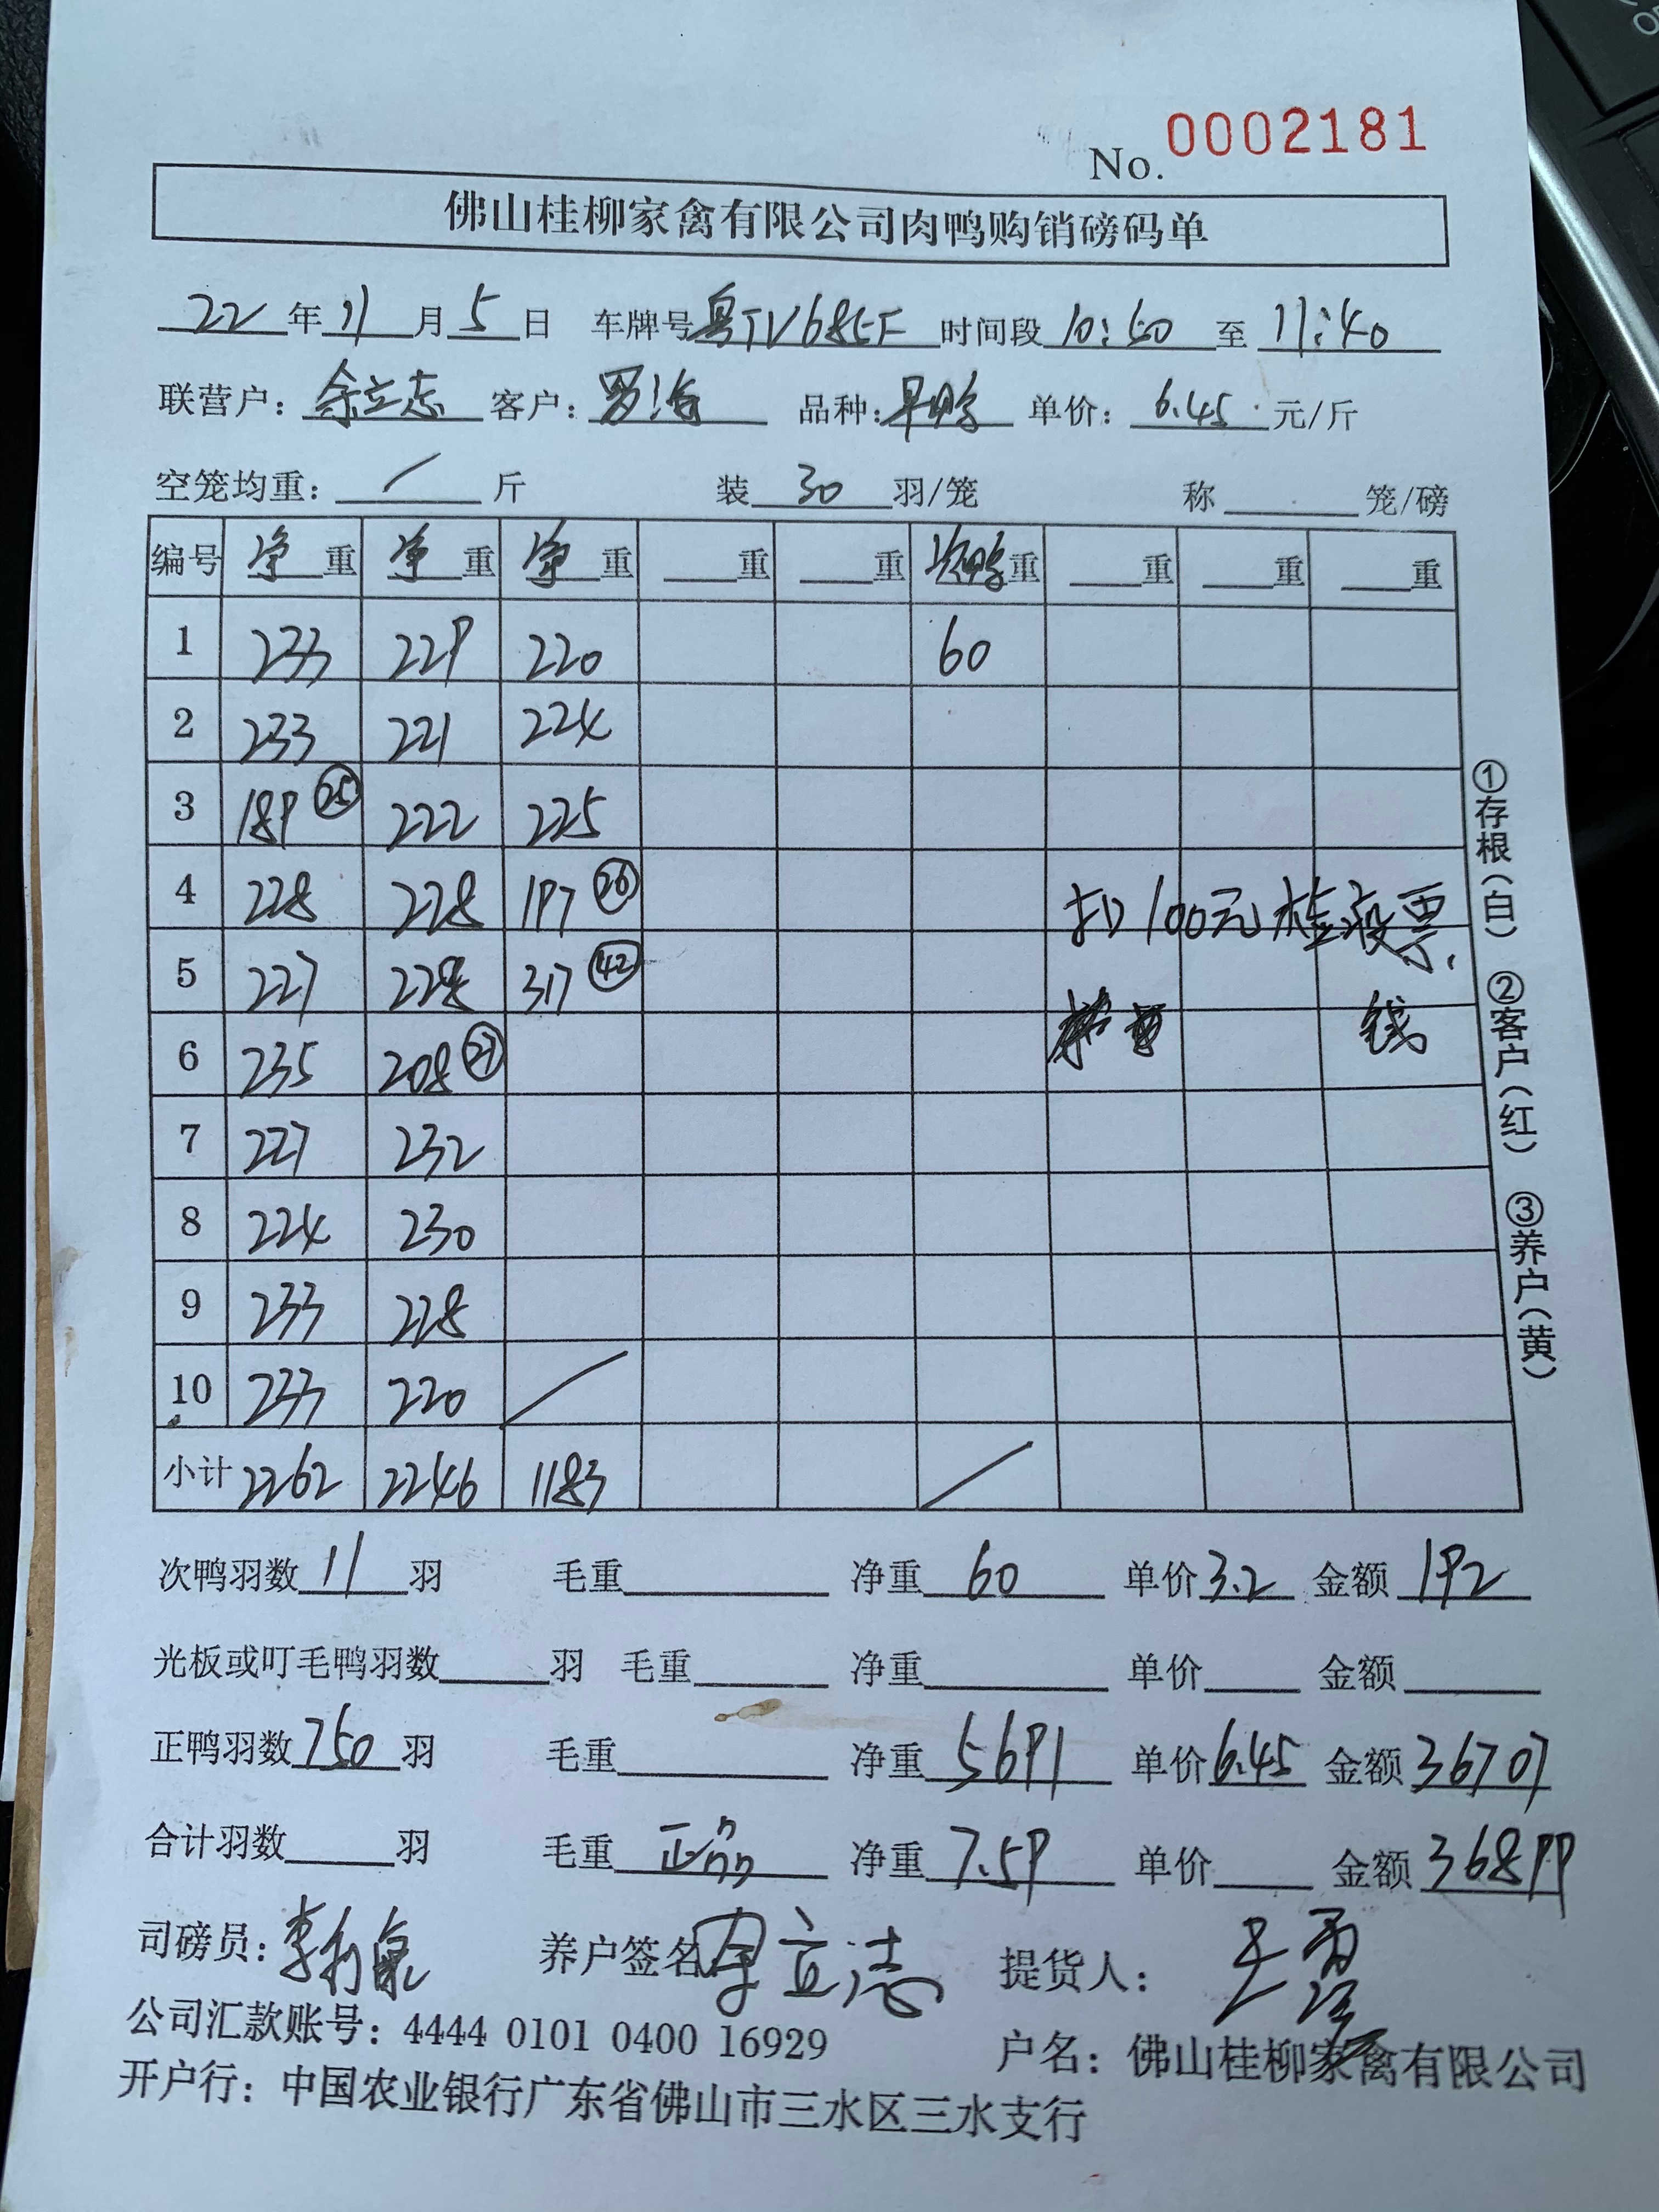 No. 0002181
佛山桂柳家禽有限公司肉鸭购销磅码单
22年11月5日 车牌号粤TV685F 时间段10:50至11:40
联营户：余立志 客户：罗 品种：早鸭 单价：6.45元/斤
空笼均重：/斤 装30羽/笼 称 笼/磅
编号 净重 净重 净重 重 重 次鸭重 重 重 重
1 233 229 220 60
2 233 221 224
3 189 ㉕ 222 225
4 228 228 197 ㉖
5 227 228 317 ㊷
6 235 208 ㉗
7 227 232
8 224 230
9 233 228
10 233 220
小计 2262 2246 1183
扣100元检疫票,
钱
①存根（白） ②客户（红） ③养户（黄）
次鸭羽数11羽 毛重 净重60 单价3.2 金额192
光板或叮毛鸭羽数 羽 毛重 净重 单价 金额
正鸭羽数750羽 毛重 净重5691 单价6.45 金额36707
合计羽数 羽 毛重 正品 净重7.59 单价 金额36899
司磅员：李 养户签名 余立志 提货人：
公司汇款账号：4444 0101 0400 16929 户名：佛山桂柳家禽有限公司
开户行：中国农业银行广东省佛山市三水区三水支行